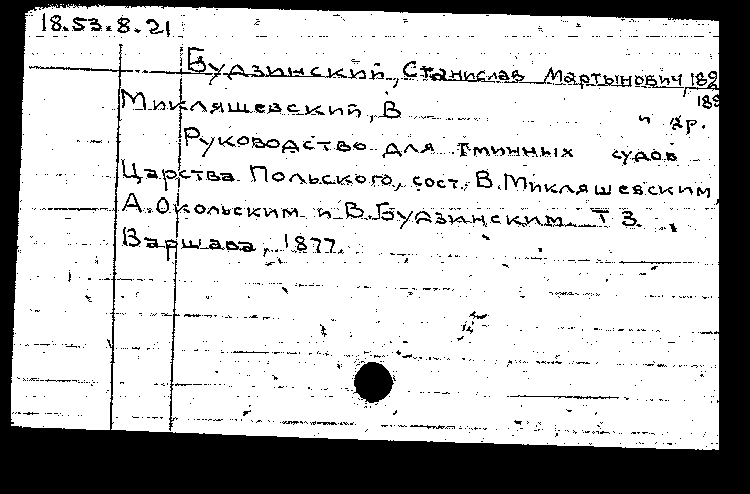 18.53.8.21
Будзинский, Станислав Мартынович, 182
189
Микляшевский, В и др.
Руководство для гминных судов
Царства Польского, сост. В.Микляшевским,
А.Окольским и В.Будзинским. Т 3.
Варшава, 1877.